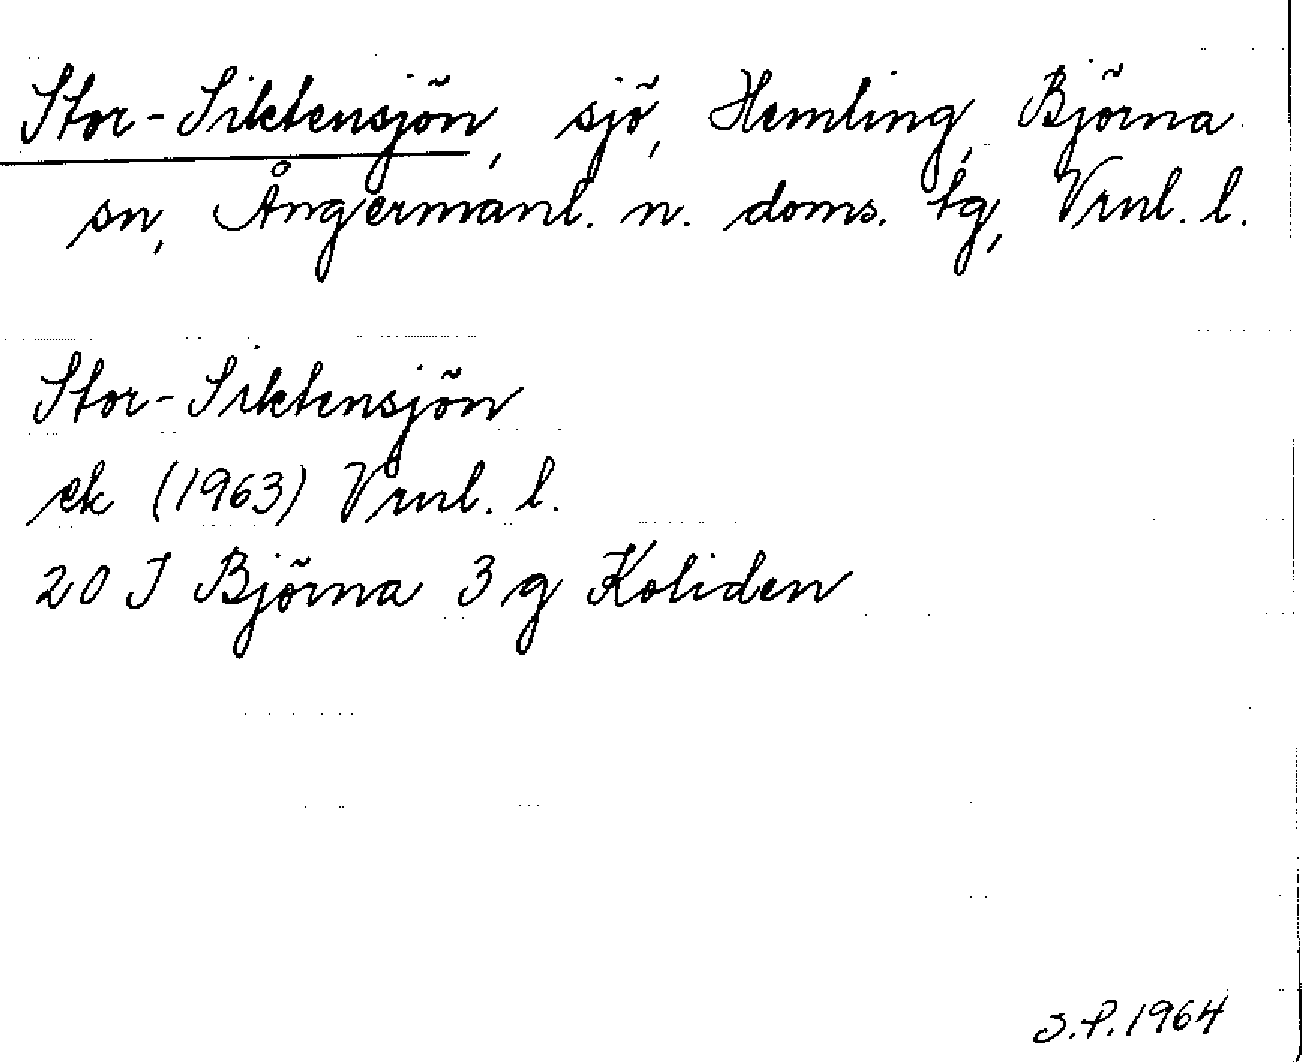 Stor-Siktensjön, sjö, Hemling, Björna
sn, Ångermanl. n. doms. tg, Vrnl. l.
Stor-Siktensjön
ek (1963) Vrnl. l.
20 J Björna 3 g Koliden
S.P. 1964